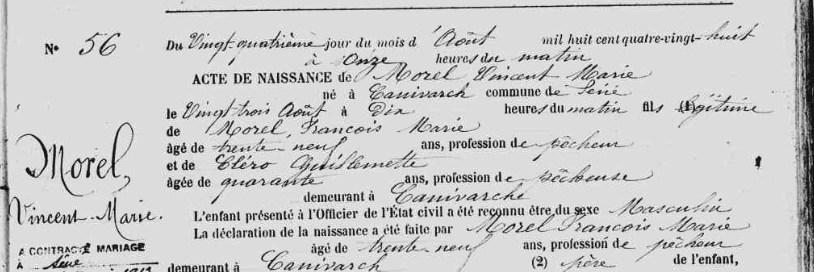 N° 56
Du Vingt-quatrième jour du mois d'Août mil huit cent quatre-vingt-huit
à Onze heures du matin
ACTE DE NAISSANCE de Morel Vincent Marie
né à Canivarch commune de Séné
le Vingt trois Août à Dix heures du matin fils (1) légitime
de Morel, François Marie
âgé de trente-neuf ans, profession de pêcheur
et de Cléro Guillemette
âgée de quarante ans, profession de pêcheuse
demeurant à Canivarche
L'enfant présenté à l'Officier de l'État civil a été reconnu être du sexe Masculin
La déclaration de la naissance a été faite par Morel François Marie
âgé de trente neuf ans, profession de pêcheur
demeurant à Canivarch (2) père de l'enfant,
Morel,
Vincent-Marie.
A CONTRACTÉ MARIAGE
À Séné